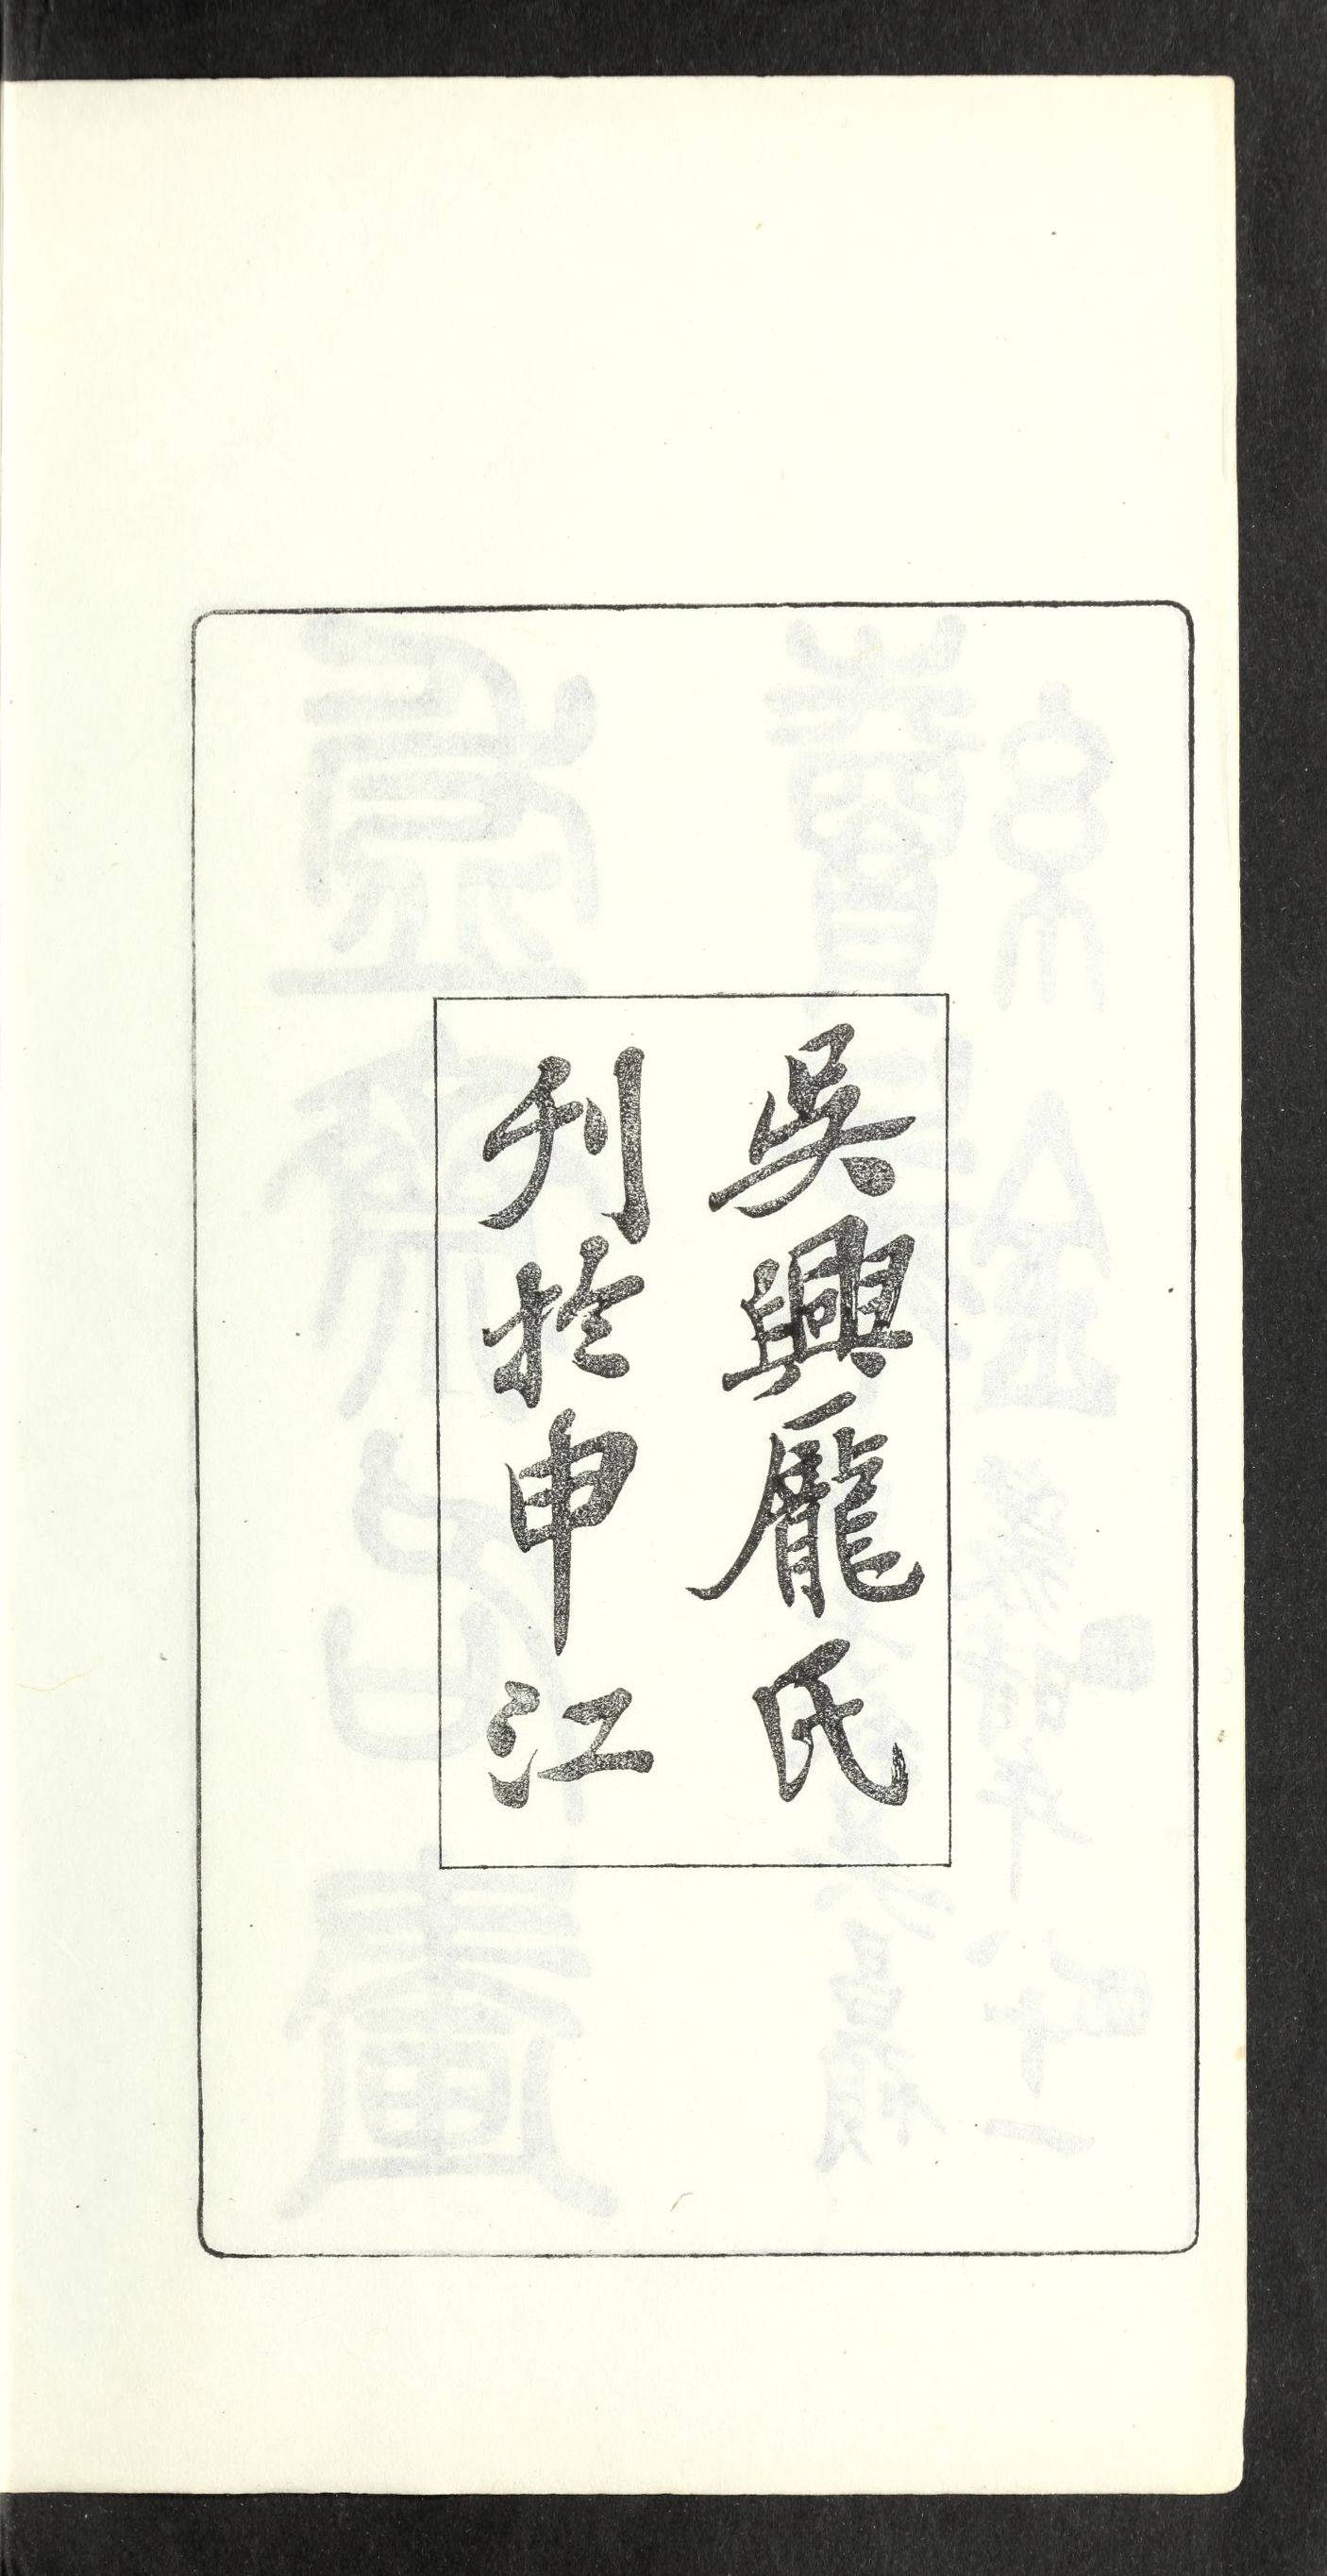 吳興龐氏
刊於申江